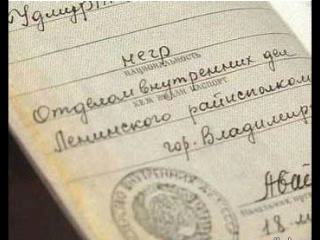 Удмурт
негр
НАЦИОНАЛЬНОСТЬ
Отделом внутренних дел
КЕМ ВЫДАН ПАСПОРТ
Ленинского райисполком
гор. Владимир
Авай
Начальник
18
ВНУТРЕННИХ